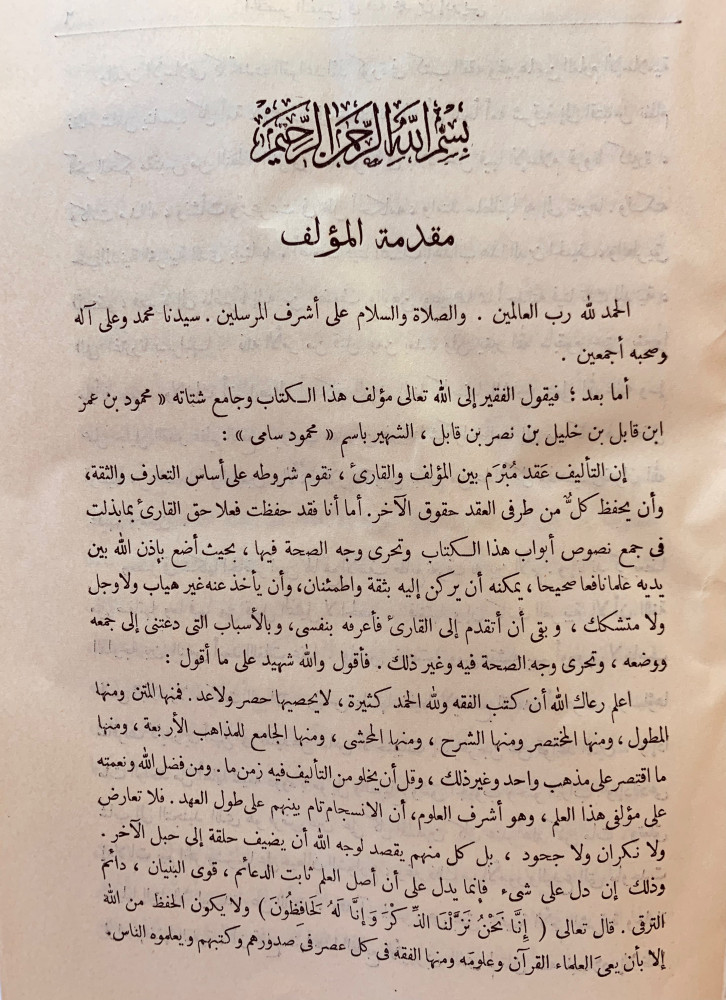 بِسْمِ اللَّهِ الرَّحْمَنِ الرَّحِيمِ
مقدمة المؤلف
الحمد لله رب العالمين . والصلاة والسلام على أشرف المرسلين . سيدنا محمد وعلى آله
وصحبه أجمعين .
أما بعد ؛ فيقول الفقير إلى الله تعالى مؤلف هذا الكتاب وجامع شتاته « محمود بن عمر
ابن قابل بن خليل بن نصر بن قابل ، الشهير باسم « محمود سامى » :
إن التأليف عَقد مُبْرَم بين المؤلف والقارئ ، تقوم شروطه على أساس التعارف والثقة،
وأن يحفظ كلٌّ من طرفى العقد حقوق الآخر. أما أنا فقد حفظت فعلا حق القارئ بما بذلت
فى جمع نصوص أبواب هذا الكتاب وتحرى وجه الصحة فيها ، بحيث أضع بإذن الله بين
يديه علما نافعا صحيحا ، يمكنه أن يركن إليه بثقة واطمئنان، وأن يأخذ عنه غير هياب ولا وجل
ولا متشكك ، و بقى أن أتقدم إلى القارئ فأعرفه بنفسى، وبالأسباب التى دعتنى إلى جمعه
ووضعه ، وتحرى وجه الصحة فيه وغير ذلك . فأقول والله شهيد على ما أقول :
اعلم رعاك الله أن كتب الفقه ولله الحمد كثيرة ، لا يحصيها حصر ولا عد. فمنها المتن ومنها
المطول ، ومنها المختصر ومنها الشرح ، ومنها المحشى ، ومنها الجامع للمذاهب الأربعة ، ومنها
ما اقتصر على مذهب واحد وغير ذلك ، وقل أن يخلو من التأليف فيه زمن ما . ومن فضل الله ونعمته
على مؤلفى هذا العلم ، وهو أشرف العلوم، أن الانسجام تام بينهم على طول العهد. فلا تعارض
ولا نكران ولا جحود ، بل كل منهم يقصد لوجه الله أن يضيف حلقة إلى حبل الآخر .
وذلك إن دل على شىء فإنما يدل على أن أصل العلم ثابت الدعائم ، قوى البنيان ، دائم
الترقى . قال تعالى ( إِنَّا نَحْنُ نَزَّلْنَا الذِّكْرَ وَإِنَّا لَهُ لَحَافِظُونَ ) ولا يكون الحفظ من الله
إلا بأن يعىَ العلماء القرآن وعلومَه ومنها الفقه فى كل عصر فى صدورهم وكتبهم و يعلموه الناس.